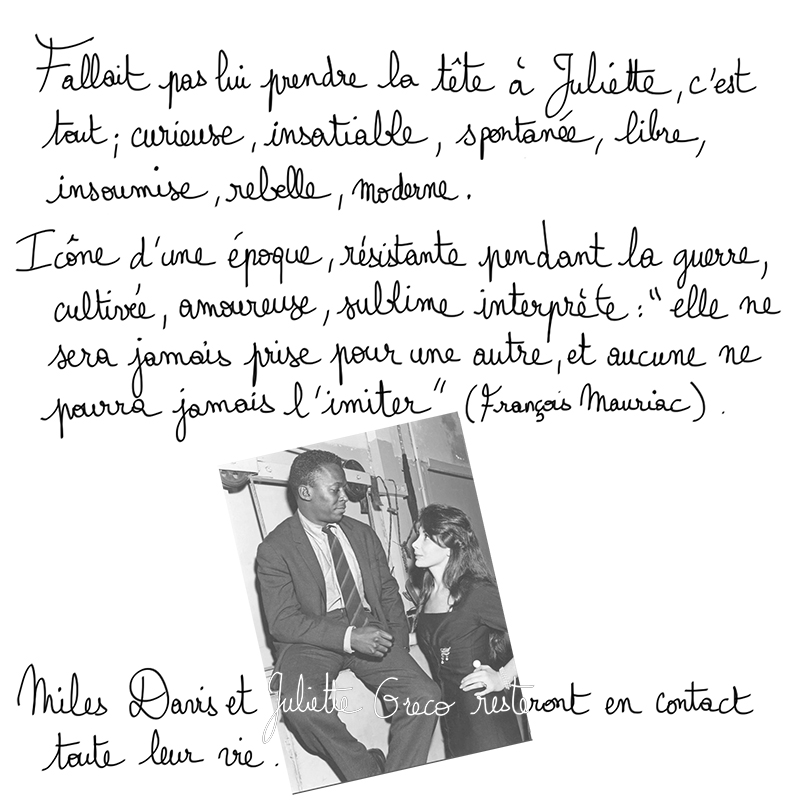 Fallait pas lui prendre la tête à Juliette, c'est
tout ; curieuse, insatiable, spontanée, libre,
insoumise, rebelle, moderne.
Icône d'une époque, résistante pendant la guerre,
cultivée, amoureuse, sublime interprète : "elle ne
sera jamais prise pour une autre, et aucune ne
pourra jamais l'imiter" (François Mauriac).
Miles Davis et Juliette Greco resteront en contact
toute leur vie.